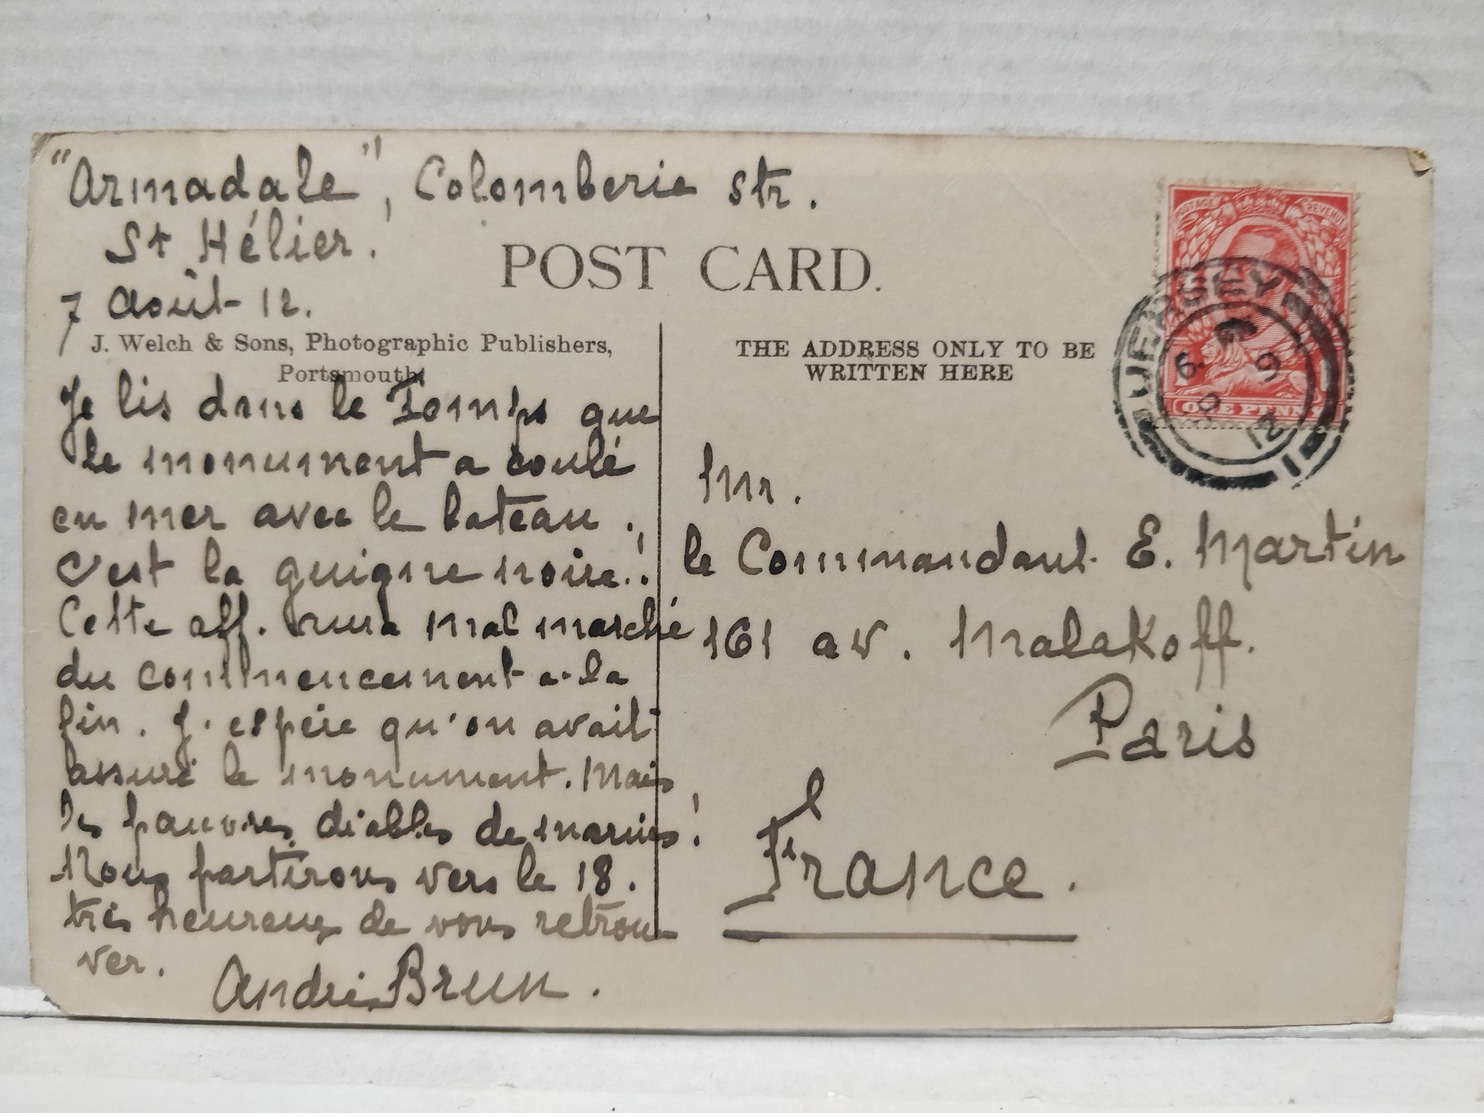 "Armadale", Colomberie str.
St Hélier.
7 Août 12.
POST CARD.
J. Welch & Sons, Photographic Publishers,
Portsmouth
THE ADDRESS ONLY TO BE
WRITTEN HERE
Je lis dans le Temps que
le monument a coulé
en mer avec le bateau.
C'est la guigne noire!
Cette aff. aura mal marché
du commencement à la
fin. J'espère qu'on avait
assuré le monument. Mais
les pauvres diables de marins!
Nous partirons vers le 18.
très heureux de vous retrou
ver.
André Brun.
Mr.
le Commandant E. Martin
161 av. Malakoff.
Paris
France.
POSTAGE REVENUE
ONE PENNY
JERSEY
12